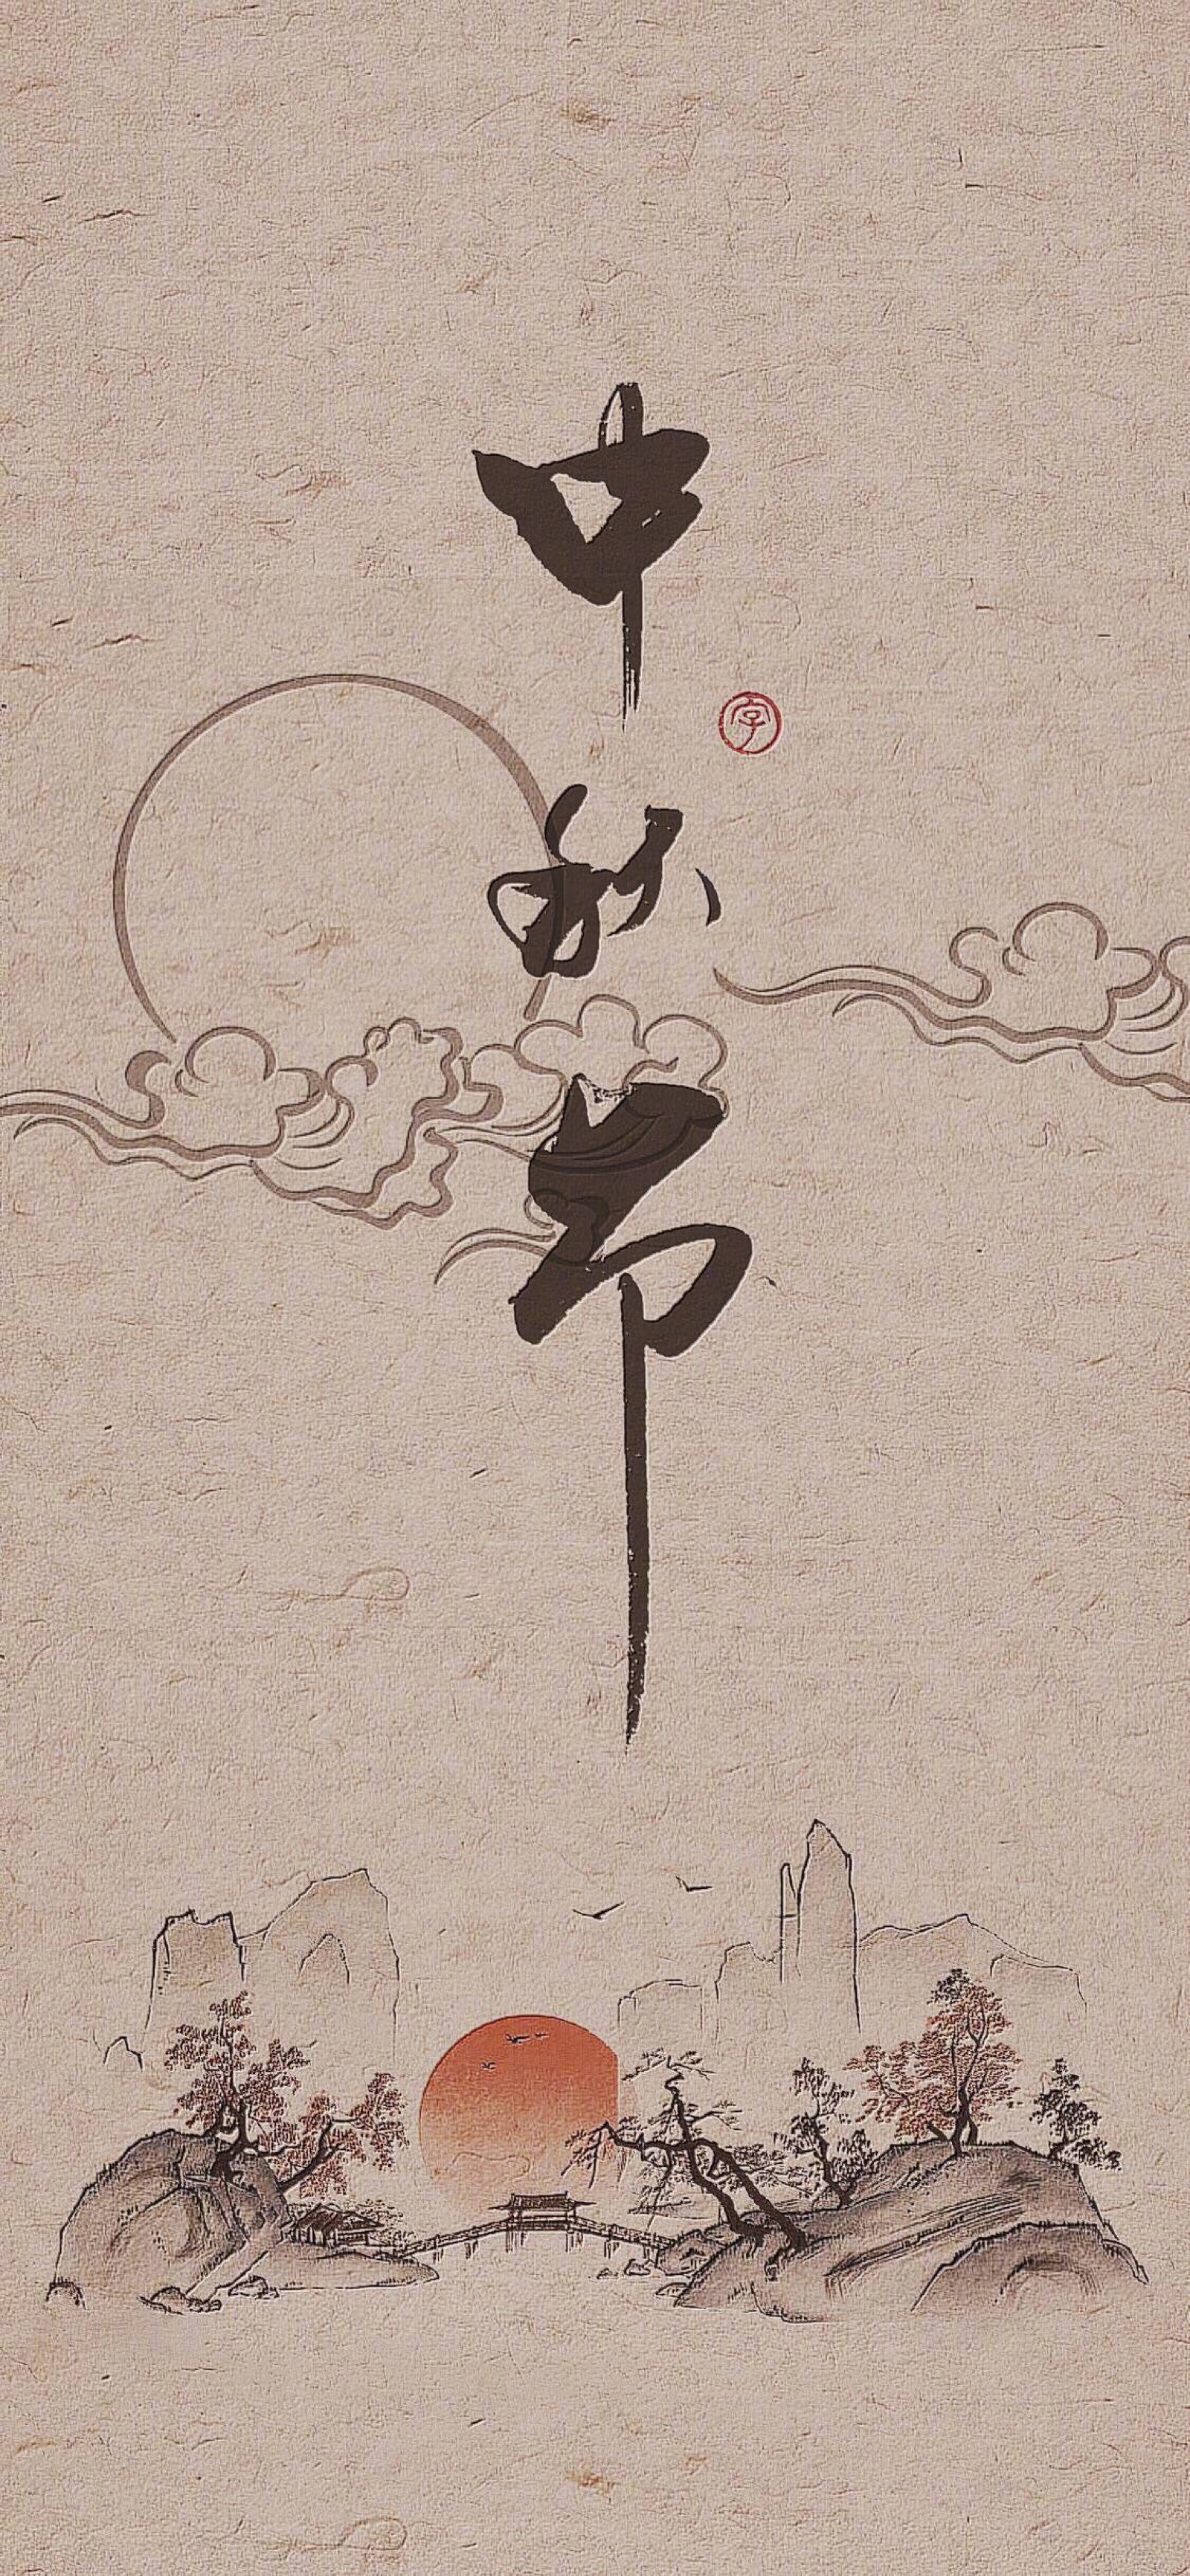 中秋节
字